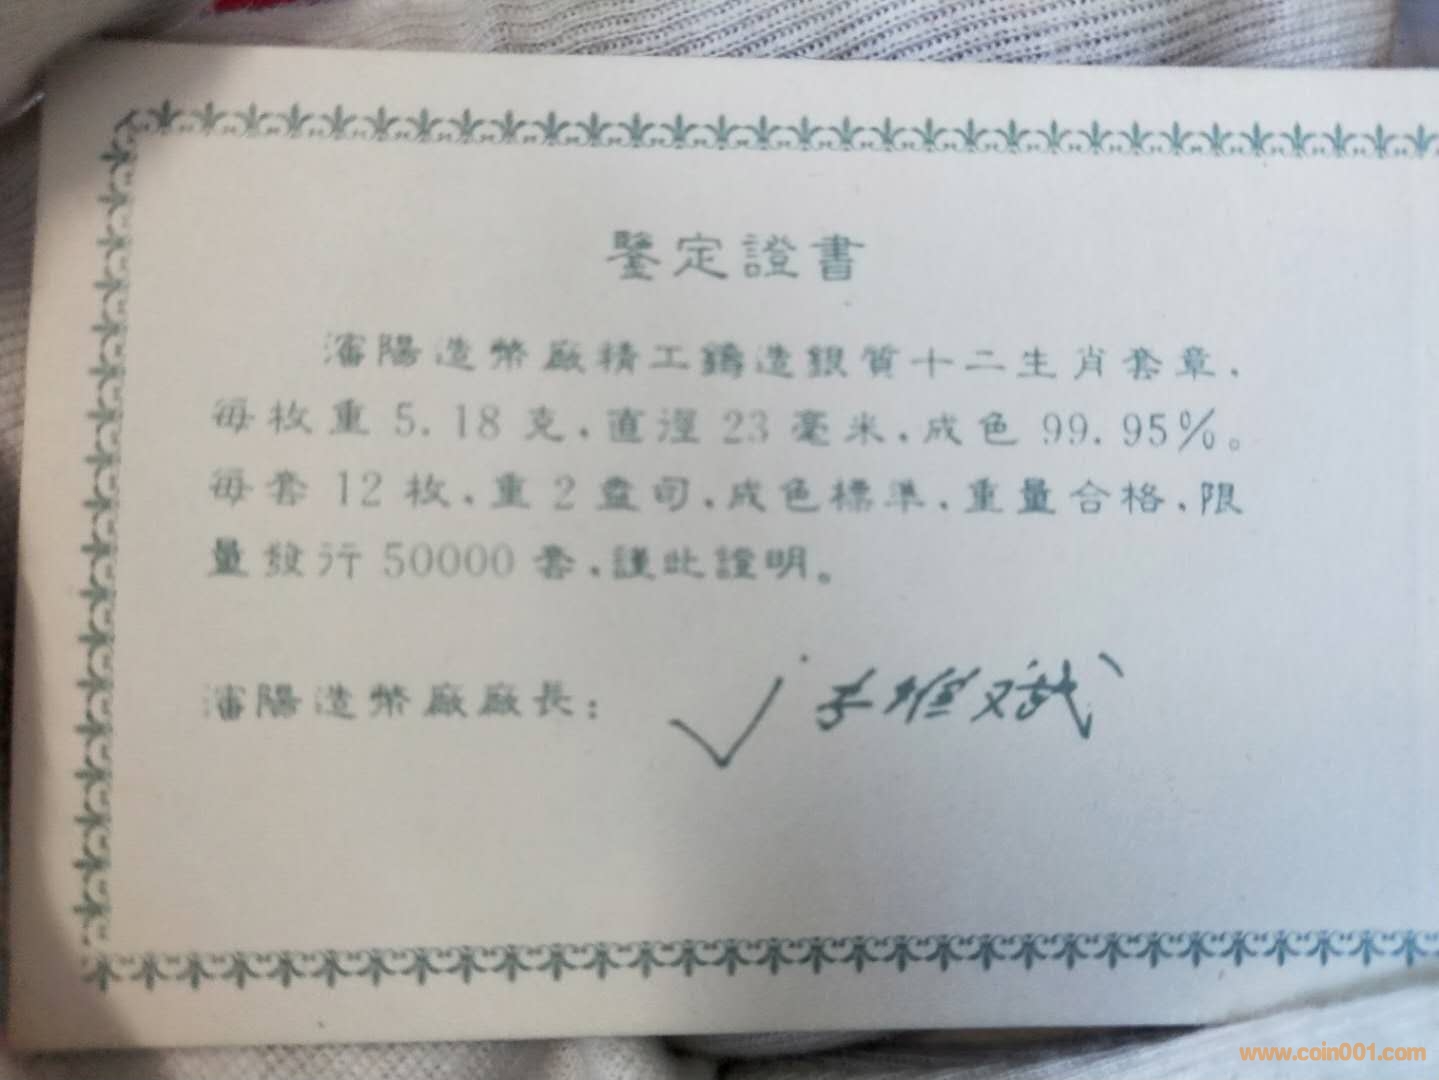 鑒定證書
瀋陽造幣廠精工鑄造銀質十二生肖套章，
每枚重5.18克，直徑23毫米，成色99.95%。
每套12枚，重2盎司，成色標準，重量合格，限
量發行50000套，謹此證明。
瀋陽造幣廠廠長：
www.coin001.com